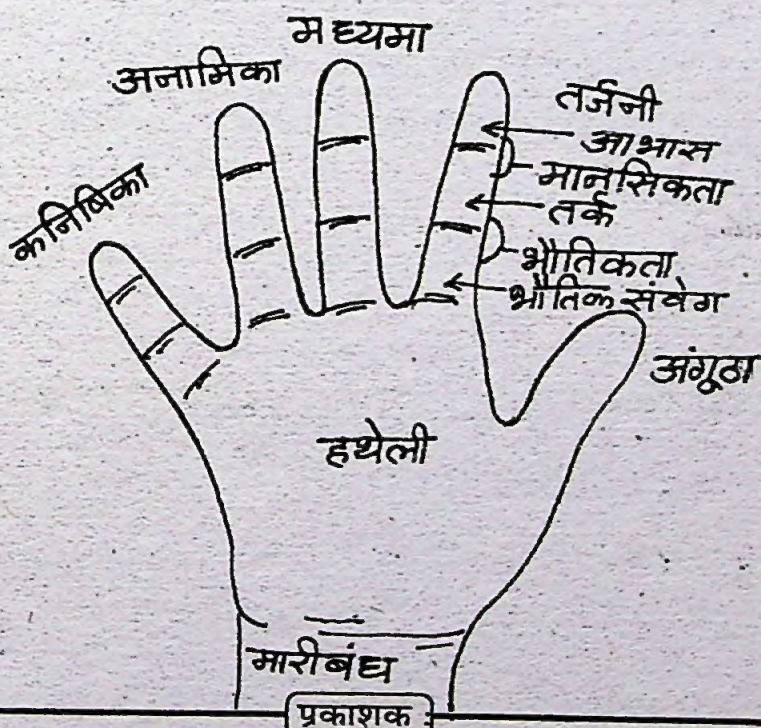 मध्यमा
अनामिका
कनिषिका
तर्जनी
आभास
मानसिकता
तर्क
भौतिकता
भौतिक संवेग
अंगूठा
हथेली
मारीबंध
प्रकाशक :